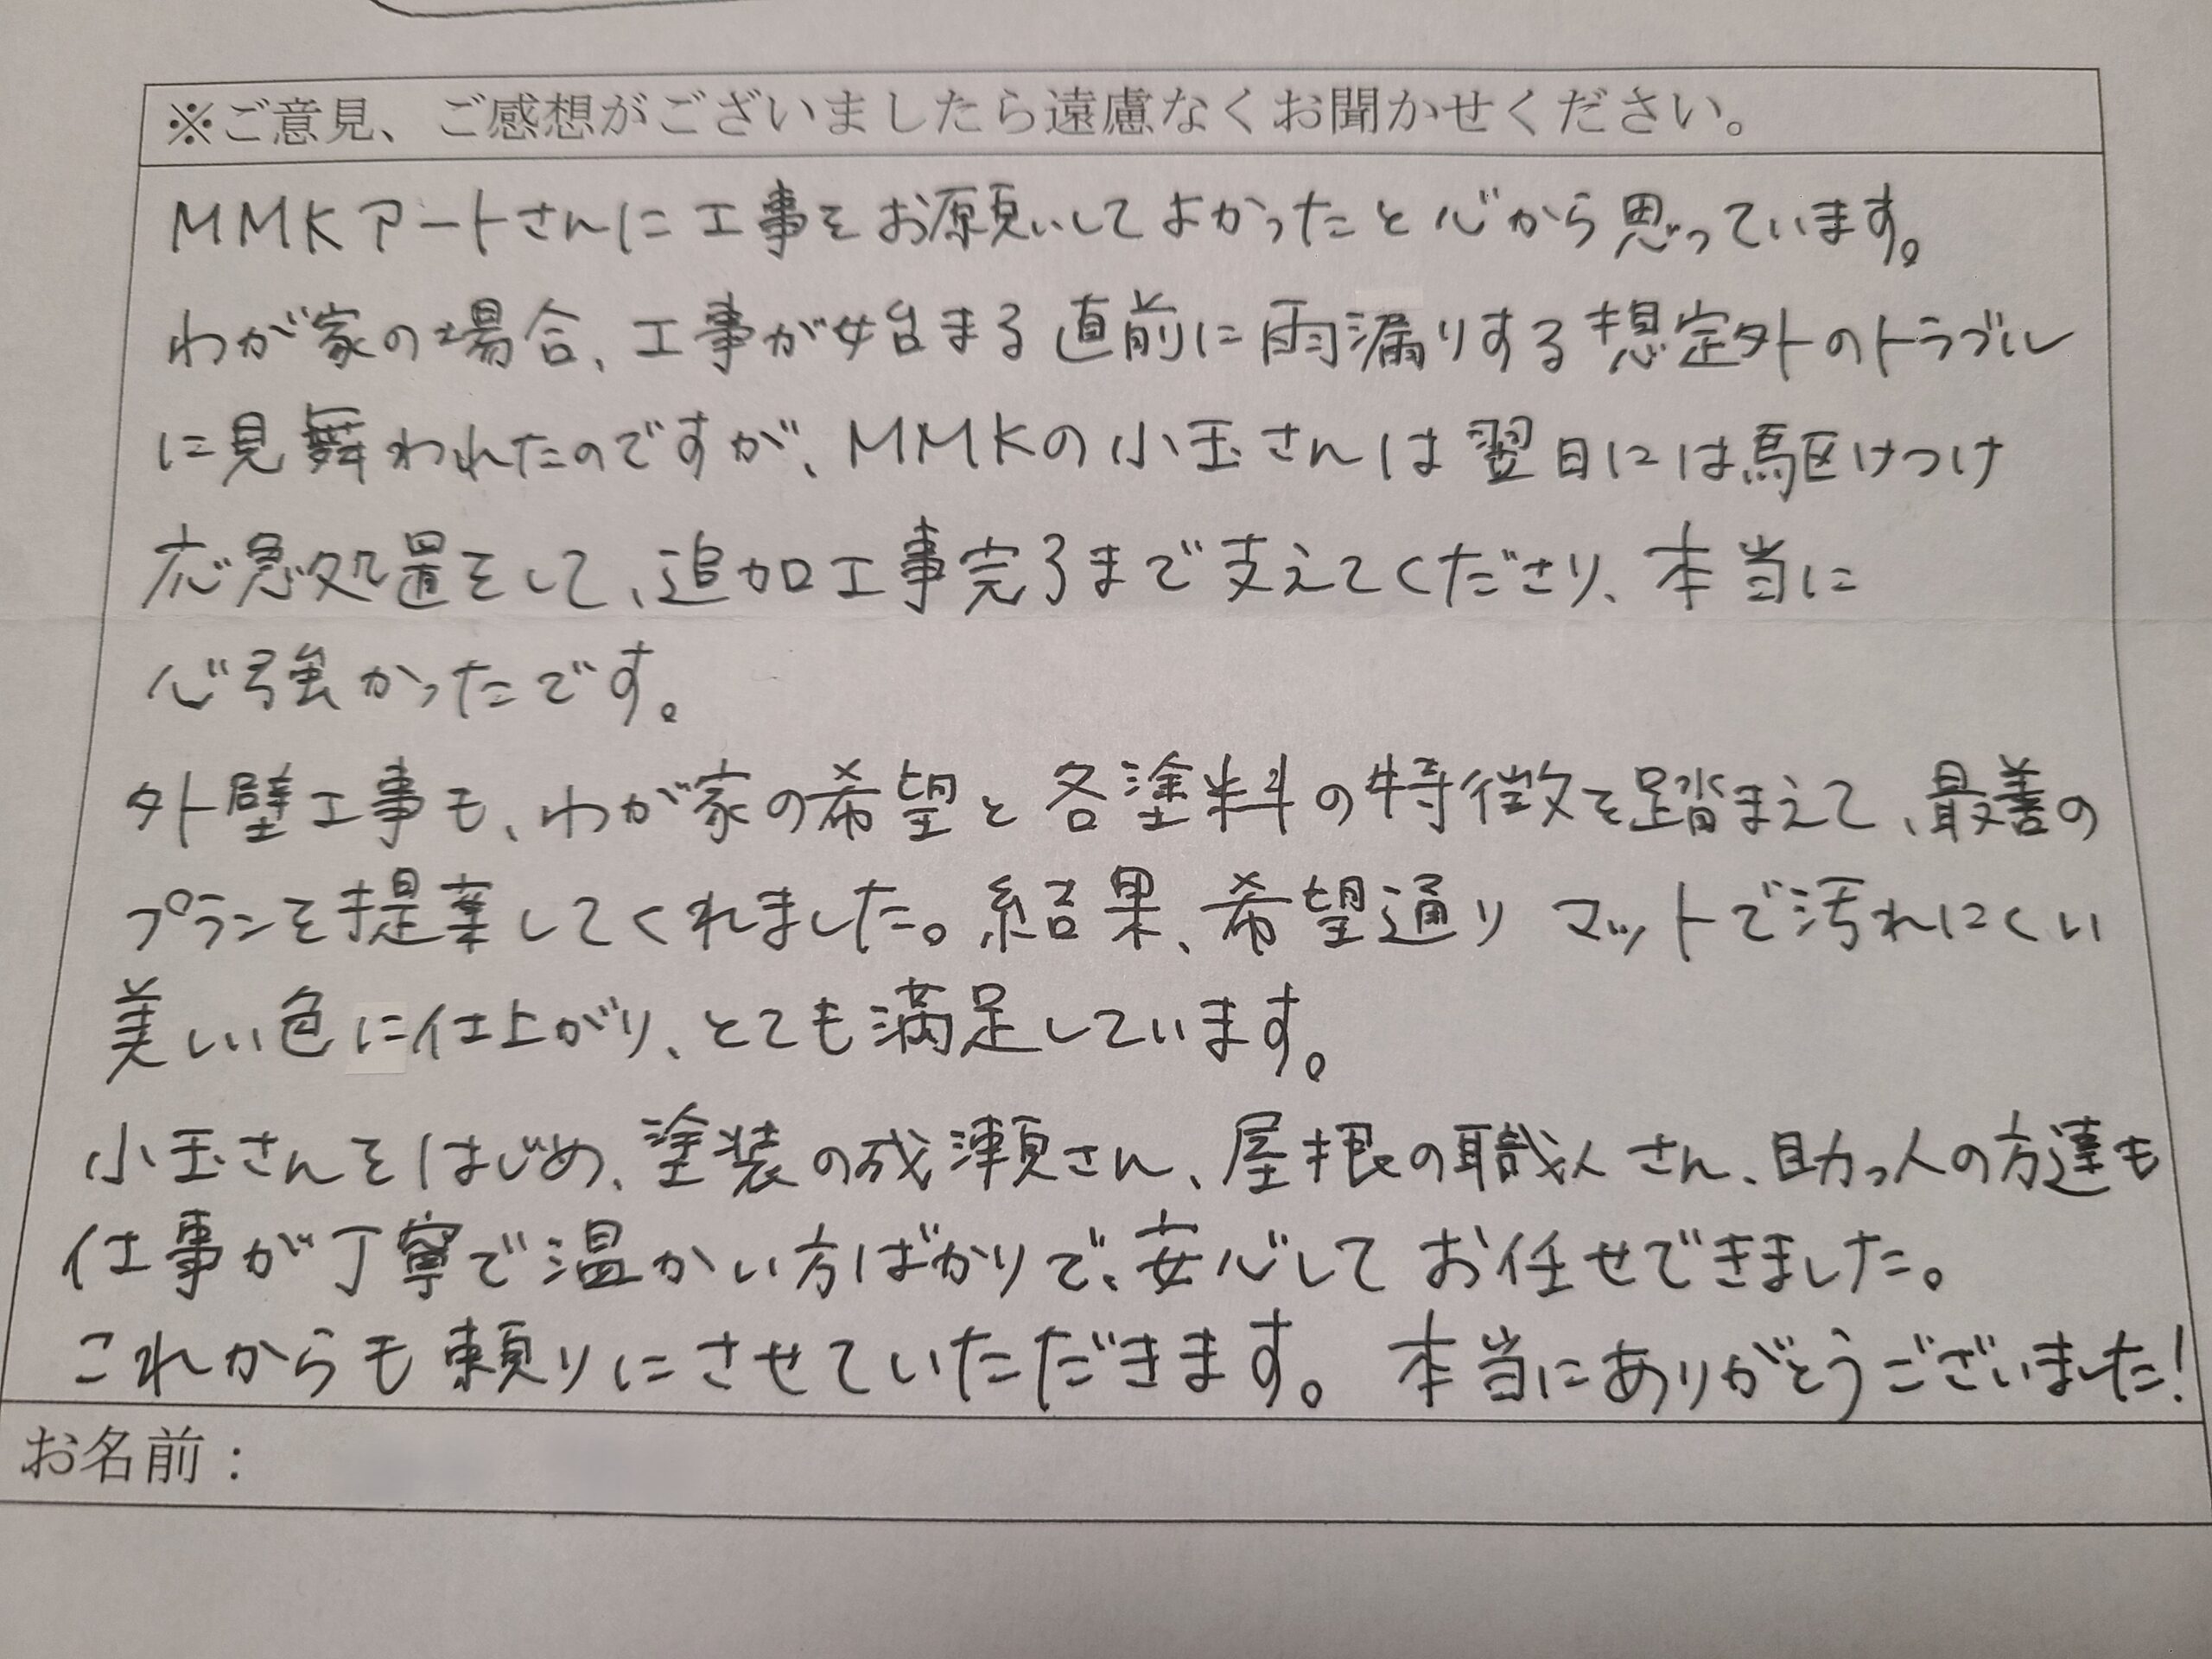 ※ご意見、ご感想がございましたら遠慮なくお聞かせください。
MMKアートさんに工事をお願いしてよかったと心から思っています。
わが家の場合、工事が始まる直前に雨漏りする想定外のトラブル
に見舞われたのですが、MMKの小玉さんは翌日には駆けつけ
応急処置をして、追加工事完了まで支えてくださり、本当に
心強かったです。
外壁工事も、わが家の希望と各塗料の特徴を踏まえて、最善の
プランを提案してくれました。結果、希望通りマットで汚れにくい
美しい色に仕上がり、とても満足しています。
小玉さんをはじめ、塗装の成瀬さん、屋根の職人さん、助っ人の方達も
仕事が丁寧で温かい方ばかりで、安心してお任せできました。
これからも頼りにさせていただきます。本当にありがとうございました!
お名前：